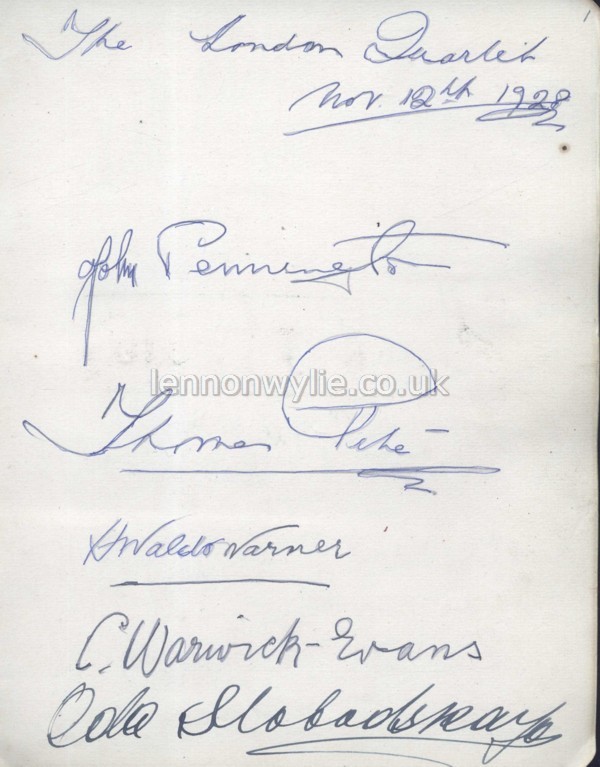 1
The London Quartet
Nov. 12th 1928
John Pennington
lennonwylie.co.uk
Thomas Petre
H Waldo Warner
C. Warwick-Evans
Oda Slobodskaya